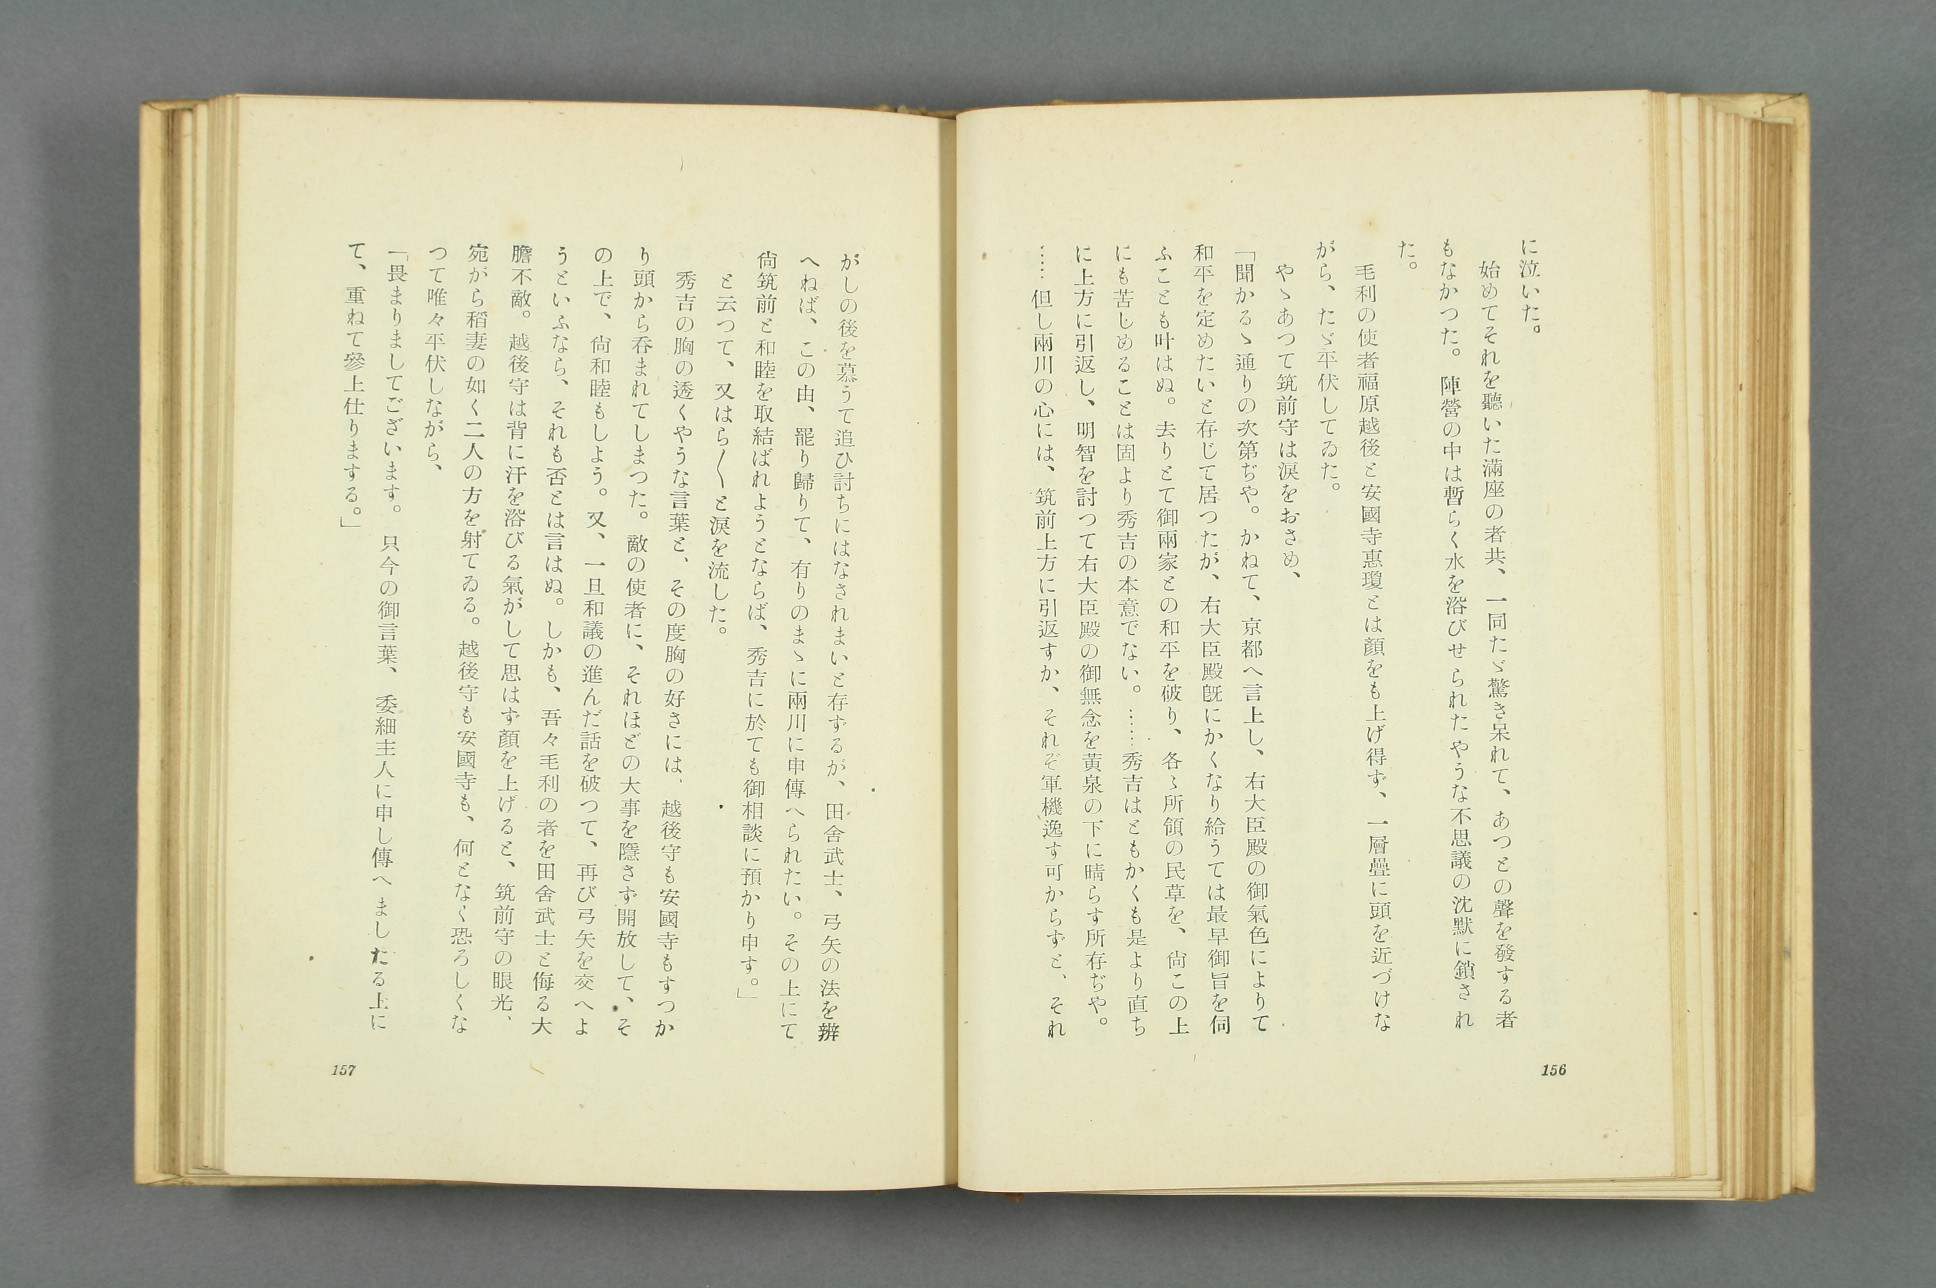 に泣いた。
始めてそれを聽いた滿座の者共、一同たゞ驚き呆れて、あつとの聲を發する者
もなかつた。陣營の中は暫らく水を浴びせられたやうな不思議の沈默に鎖され
た。
毛利の使者福原越後と安國寺惠瓊とは顏をも上げ得ず、一層疊に頭を近づけな
がら、たゞ平伏してゐた。
やゝあつて筑前守は淚をおさめ、
「聞かるゝ通りの次第ぢや。かねて、京都へ言上し、右大臣殿の御氣色によりて
和平を定めたいと存じて居つたが、右大臣殿旣にかくなり給うては最早御旨を伺
ふことも叶はぬ。去りとて御兩家との和平を破り、各〻所領の民草を、尙この上
にも苦しめることは固より秀吉の本意でない。……秀吉はともかくも是より直ち
に上方に引返し、明智を討つて右大臣殿の御無念を黃泉の下に晴らす所存ぢや。
……但し兩川の心には、筑前上方に引返すか、それぞ軍機逸す可からずと、それ
156
がしの後を慕うて追ひ討ちにはなされまいと存ずるが、田舍武士、弓矢の法を辨
へねば、この由、罷り歸りて、有りのまゝに兩川に申傳へられたい。その上にて
尙筑前と和睦を取結ばれようとならば、秀吉に於ても御相談に預かり申す。」
と云つて、又はら〱と淚を流した。
秀吉の胸の透くやうな言葉と、その度胸の好さには、越後守も安國寺もすつか
り頭から呑まれてしまつた。敵の使者に、それほどの大事を隱さず開放して、そ
の上で、尙和睦もしよう。又、一旦和議の進んだ話を破つて、再び弓矢を交へよ
うといふなら、それも否とは言はぬ。しかも、吾々毛利の者を田舍武士と侮る大
膽不敵。越後守は背に汗を浴びる氣がして思はず顏を上げると、筑前守の眼光、
宛がら稻妻の如く二人の方を射てゐる。越後守も安國寺も、何となく恐ろしくな
つて唯々平伏しながら、
「畏まりましてございます。只今の御言葉、委細主人に申し傳へましたる上に
て、重ねて參上仕りまする。」
157